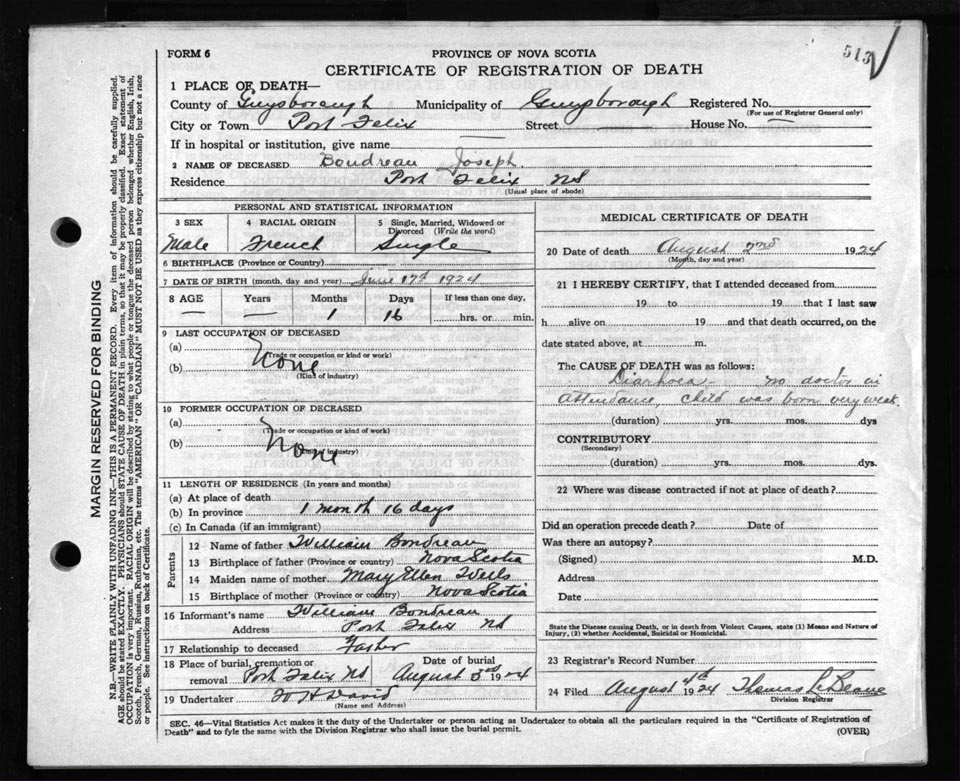 513
FORM 6
PROVINCE OF NOVA SCOTIA
CERTIFICATE OF REGISTRATION OF DEATH
1 PLACE OF DEATH—
County of Guysborough Municipality of Guysborough Registered No.
(For use of Registrar General only)
City or Town Port Felix Street — House No. —
If in hospital or institution, give name
2 NAME OF DECEASED Boudreau Joseph.
Residence Port Felix NS
(Usual place of abode)
PERSONAL AND STATISTICAL INFORMATION
3 SEX 4 RACIAL ORIGIN 5 Single, Married, Widowed or Divorced (Write the word)
Male French Single
6 BIRTHPLACE (Province or Country)
7 DATE OF BIRTH (month, day and year) June 17th 1924
8 AGE Years Months Days If less than one day,
— — 1 16 hrs. or min.
9 LAST OCCUPATION OF DECEASED
(a)
(Trade or occupation or kind of work)
(b) None
(Kind of industry)
10 FORMER OCCUPATION OF DECEASED
(a)
(Trade or occupation or kind of work)
(b) None
(Kind of industry)
11 LENGTH OF RESIDENCE (In years and months)
(a) At place of death
(b) In province 1 month 16 days
(c) In Canada (if an immigrant)
Parents
12 Name of father William Boudreau
13 Birthplace of father (Province or country) Nova Scotia
14 Maiden name of mother Mary Ellen Wells
15 Birthplace of mother (Province or country) Nova Scotia
16 Informant's name William Boudreau
Address Port Felix NS
17 Relationship to deceased Father
18 Place of burial, cremation or removal Port Felix NS Date of burial August 3rd 1924
19 Undertaker David
(Name and Address)
MEDICAL CERTIFICATE OF DEATH
20 Date of death August 2nd 1924
(Month, day and year)
21 I HEREBY CERTIFY, that I attended deceased from
19 to 19 that I last saw
h alive on 19 and that death occurred, on the
date stated above, at m.
The CAUSE OF DEATH was as follows:
Diarhoea no doctor in
attendance, child was born very weak.
(duration) yrs. mos. dys
CONTRIBUTORY
(Secondary)
(duration) yrs. mos. dys.
22 Where was disease contracted if not at place of death?
Did an operation precede death? Date of
Was there an autopsy?
(Signed) M.D.
Address
Date
State the Disease causing Death, or in death from Violent Causes, state (1) Means and Nature of
Injury, (2) whether Accidental, Suicidal or Homicidal.
23 Registrar's Record Number
24 Filed August 4th 1924 Thomas
Division Registrar
SEC. 46—Vital Statistics Act makes it the duty of the Undertaker or person acting as Undertaker to obtain all the particulars required in the "Certificate of Registration of
Death" and to fyle the same with the Division Registrar who shall issue the burial permit.
(OVER)
MARGIN RESERVED FOR BINDING
N.B.—WRITE PLAINLY WITH UNFADING INK—THIS IS A PERMANENT RECORD. Every item of information should be carefully supplied.
AGE should be stated EXACTLY. PHYSICIANS should STATE CAUSE OF DEATH in plain terms, so that it may be properly classified. Exact statement of
OCCUPATION is very important. RACIAL ORIGIN will be described by stating to what people or tongue the deceased person belonged whether English, Irish,
Scotch, French, German, Russian, Ruthenian, etc. The terms "AMERICAN" OR "CANADIAN" MUST NOT BE USED as they express citizenship but not a race
or people. See instructions on back of Certificate.